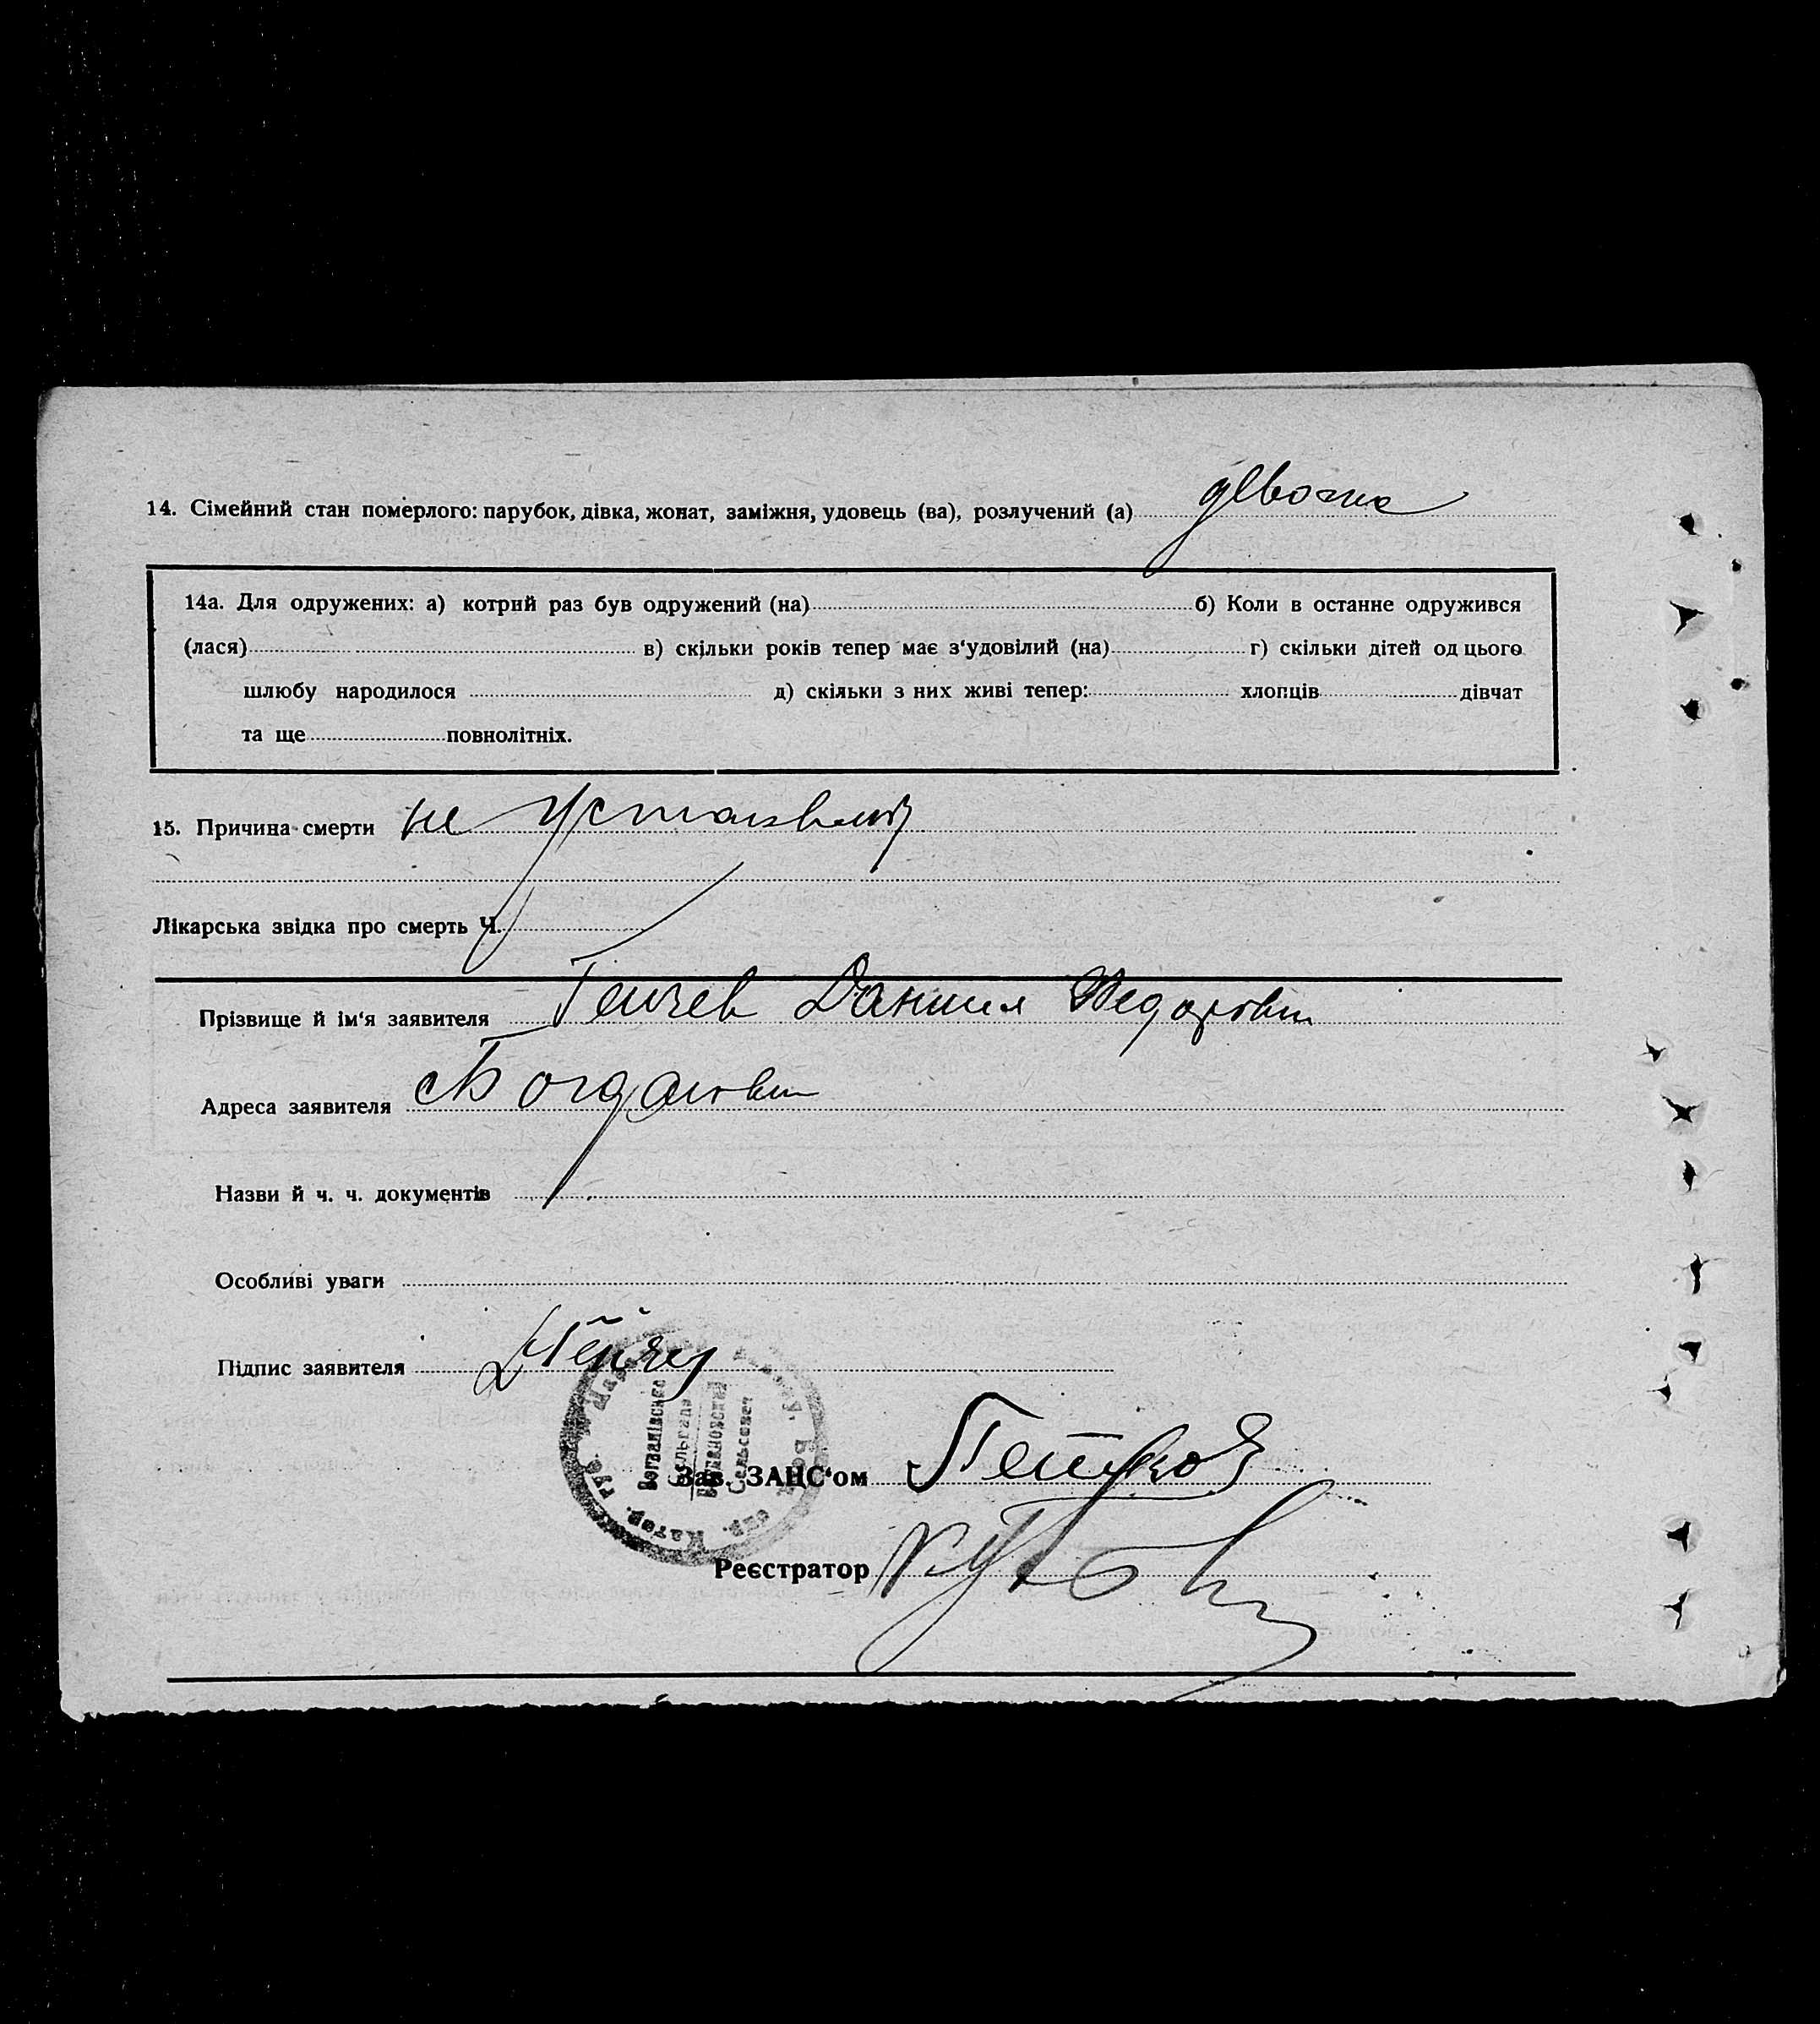 14. Сімейний стан померлого: парубок, дівка, жонат, заміжня, удовець (ва), розлучений (а) девочка
14а. Для одружених: а) котрий раз був одружений (на) б) Коли в останне одружився
(лася) в) скільки років тепер має з'удовілий (на) г) скільки дітей од цього
шлюбу народилося д) скільки з них живі тепер: хлопців дівчат
та ще повнолітніх.
15. Причина смерти не
Лікарська звідка про смерть Ч.
Прізвище й ім'я заявителя Данил Федорович
Адреса заявителя
Назви й ч. ч. документів
Особливі уваги
Підпис заявителя
Богданівська
Сельрада
Богдановский
Сельсовет
Зав. ЗАЦС'ом Петков
Реєстратор